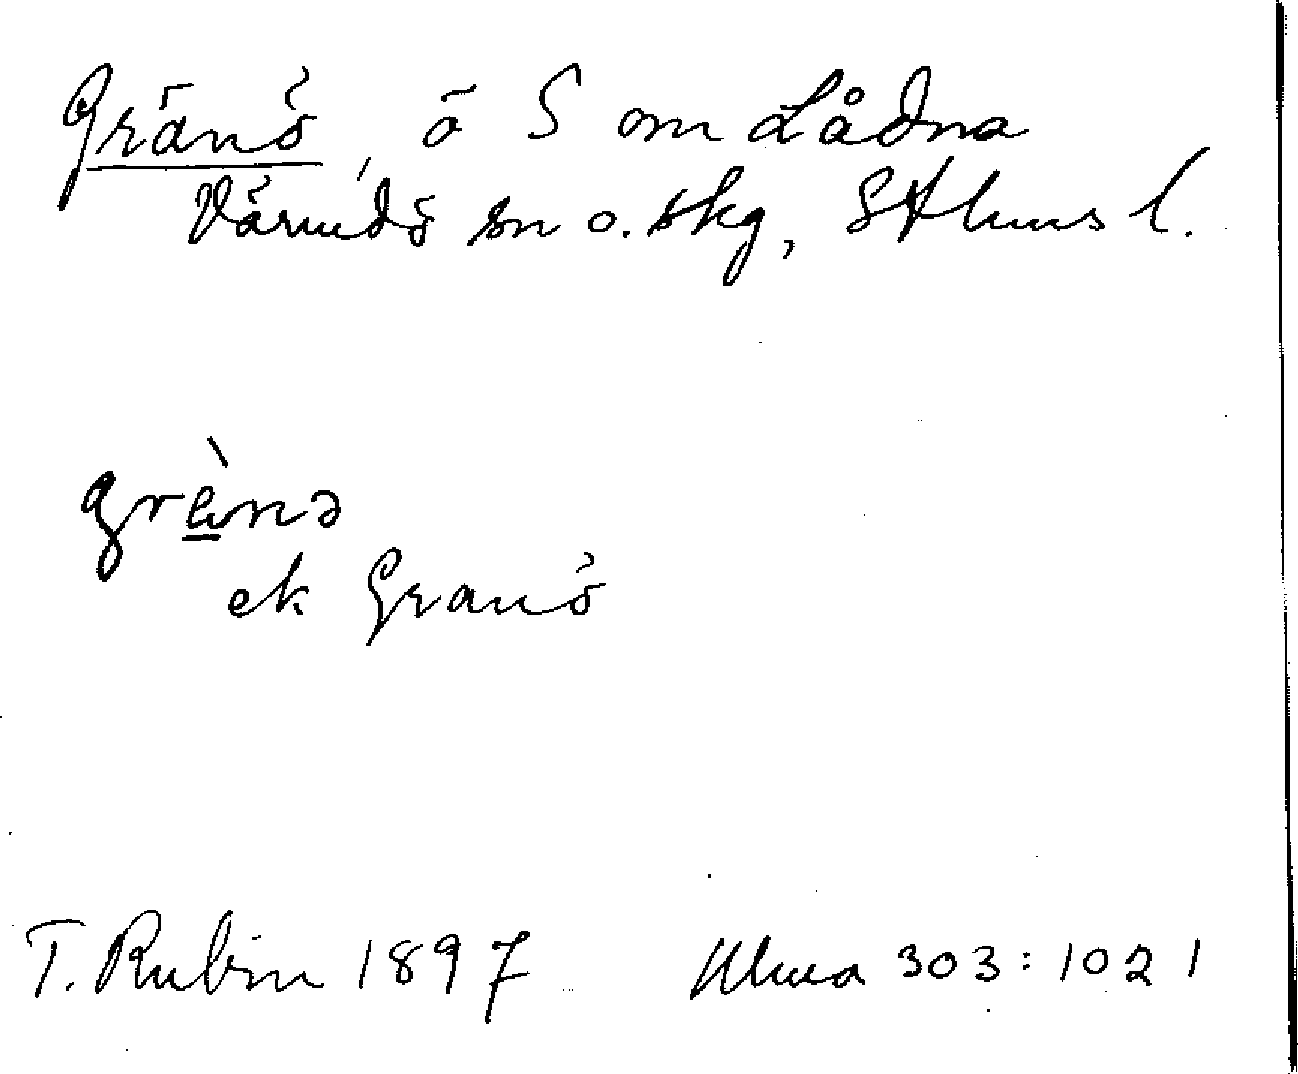 Gränö, ö S om Lådna
Värmdö sn o. skg, Sthms l.
grä̀nə
ek Granö
T. Rubin 1897 Uluma 303:1021